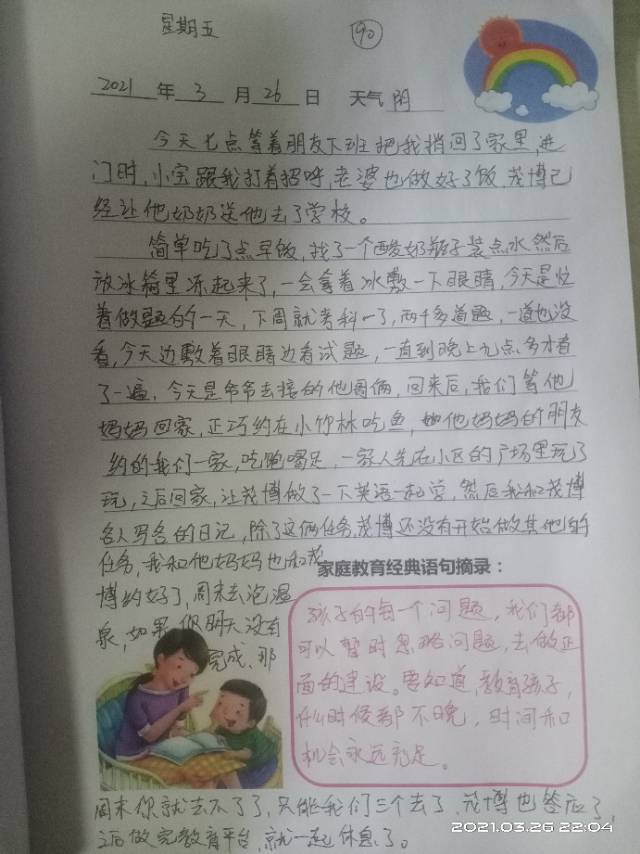 星期五
90
2021 年 3 月 26 日 天气 阴
今天七点等着朋友下班把我捎回了家里,进
门时,小宝跟我打着招呼,老婆也做好了饭,茂博已
经让他奶奶送他去了学校。
简单吃了点早饭,找了一个酸奶瓶子装点水然后
放冰箱里冻起来了,一会拿着冰敷一下眼睛,今天是忙
着做题的一天,下周就考科一了,两千多道题,一道也没
看,今天边敷着眼睛边看试题,一直到晚上九点多才看
了一遍,今天是爷爷去接的他哥俩,回来后,我们等他
妈妈回家,正巧约在小竹林吃鱼,他妈妈的朋友
约的我们一家,吃饱喝足,一家人先在小区的广场里玩了
玩,之后回家,让茂博做了一下英语一起学,然后我和茂博
各人写各的日记,除了这俩任务,茂博还没有开始做其他的
任务,我和他妈妈也和茂
博约好了,周末去泡温
泉,如果你明天没有
完成,那
家庭教育经典语句摘录:
孩子的每一个问题,我们都
可以暂时忽略问题,去做正
面的建设。要知道,教育孩子,
什么时候都不晚,时间和
机会永远充足。
周末你就去不了了,只能我们三个去了,茂博也答应了,
之后做完教育平台,就一起休息了。
2021.03.26 22:04